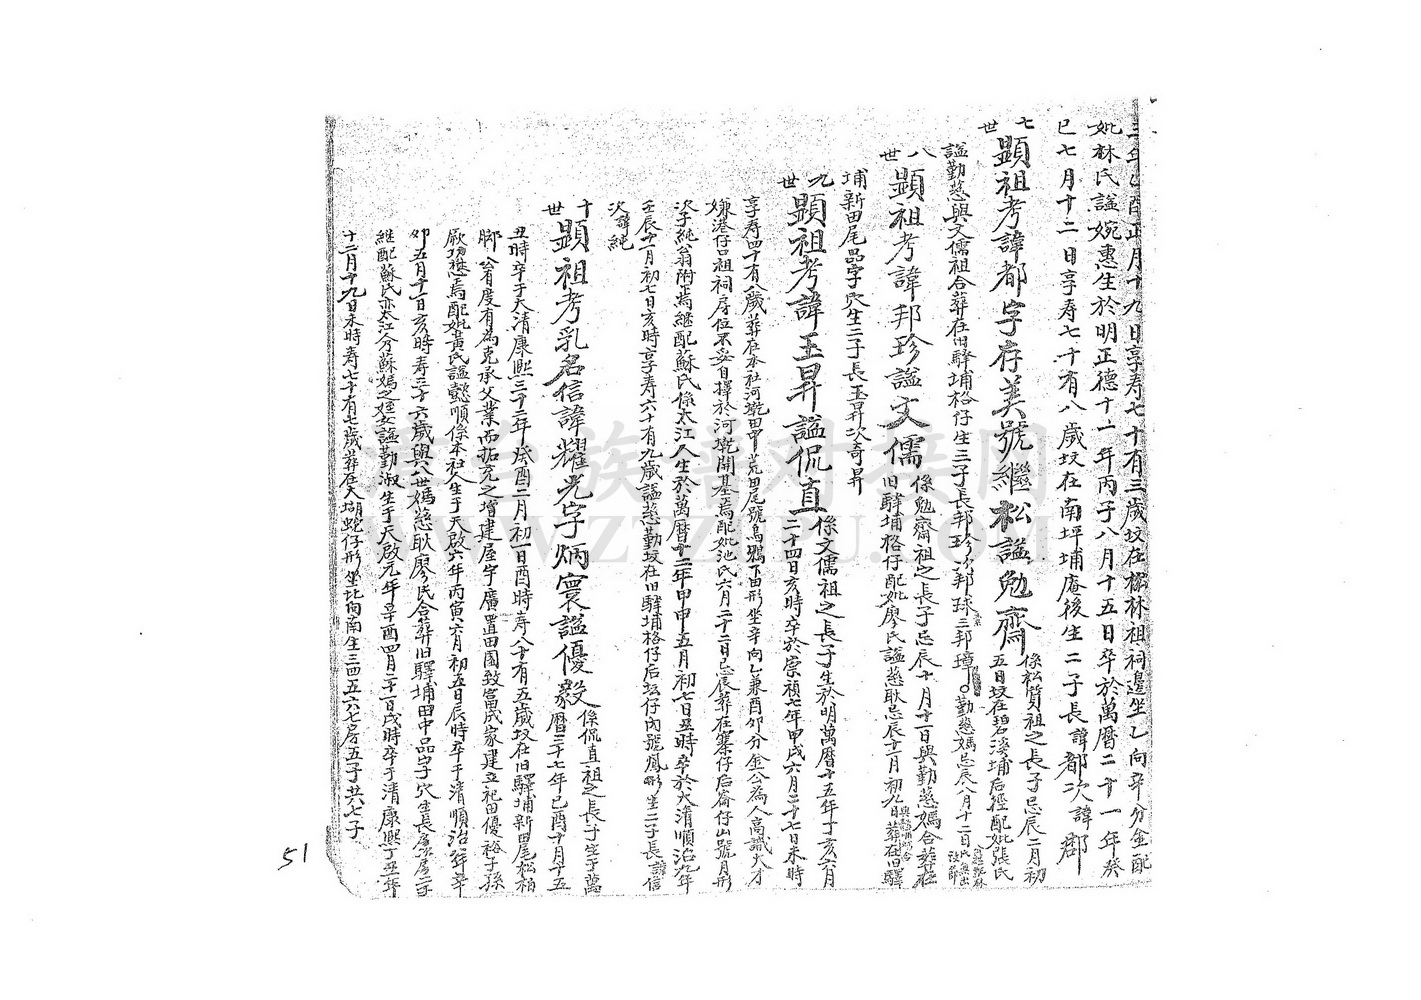 三年乙酉正月十九日享寿七十有三歲坟在松林祖祠邊坐乙向辛分金配
妣林氏謚婉惠生於明正德十一年丙子八月十五日卒於萬曆二十一年癸
巳七月十二日享寿七十有八歲坟在南坪埔庵後生二子長諱都次諱郡
七世
顯祖考諱都字存美號繼松謚勉齋
係松質祖之長子忌辰二月初
五日坟在碧溪埔后徑配妣張氏
謚勤慈與文儒祖合葬在旧驛埔格仔生三子長邦珍次邦球三邦璋
勤慈媽忌辰八月十二日
八世
顯祖考諱邦珍謚文儒
係勉齋祖之長子忌辰十月十二日與勤慈媽合葬在
旧驛埔格仔配妣廖氏謚慈耿忌辰十二月初九日葬在旧驛
埔新田尾品字穴生二子長玉昇次奇昇
九世
顯祖考諱玉昇謚侃直
係文儒祖之長子生於明萬曆十五年丁亥六月
二十四日亥時卒於崇禎七年甲戌六月二十七日未時
享寿四十有八歲葬在本社河墘田中荒田尾號烏鴉下田形坐辛向乙兼酉卯分金公為人高識大才
嫌港仔口祖祠房位不妥自擇於河墘開基焉配妣池氏六月二十二日忌辰葬在寨仔后崙仔山號月形
次子純翁附焉继配蘇氏係太江人生於萬曆十二年甲申五月初七日丑時卒於大清順治九年
壬辰十一月初七日亥時享寿六十有九歲謚慈勤坟在旧驛埔格仔后坛仔內號鳳形生二子長諱信
次諱純
十世
顯祖考乳名信諱耀光字炳寰謚優毅
係侃直祖之長子生于萬
曆三十七年己酉十月十五
丑時卒于大清康熙三十二年癸酉二月初一日酉時寿八十有五歲坟在旧驛埔新田尾松柏
腳公有度有為克承父業而拓充之增建屋宇廣置田園致富成家建立祀田優裕子孫
厥功懋焉配妣黃氏謚懿順係本社人生于天啟六年丙寅六月初五日辰時卒于清順治年辛
卯五月十一日亥時寿二十六歲與八世媽慈耿廖氏合葬旧驛埔田中品字穴生長房二子
继配蘇氏亦太江人蘇媽之姪女謚勤淑生于天啟元年辛酉四月二十一日戌時卒于清康熙丁丑年
十二月十九日未時寿七十有七歲葬在大墈蛇仔形坐北向南生三四五六七房五子共七子
51